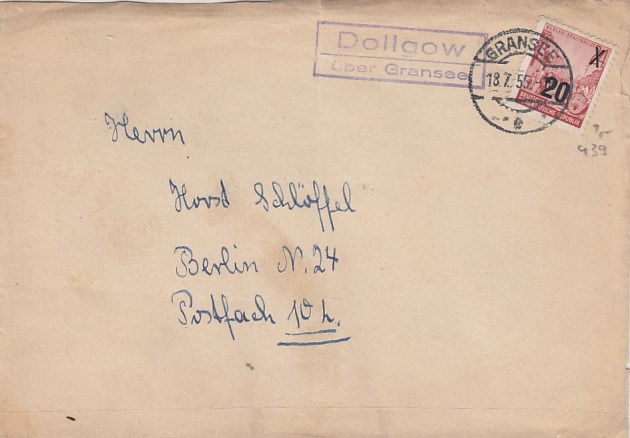 Dollgow
über Gransee
GRANSEE
18.7.55
20
DEUTSCHE DEMOKRATISCHE REPUBLIK
439
Herrn
Horst Schlöffel
Berlin N. 24
Postfach